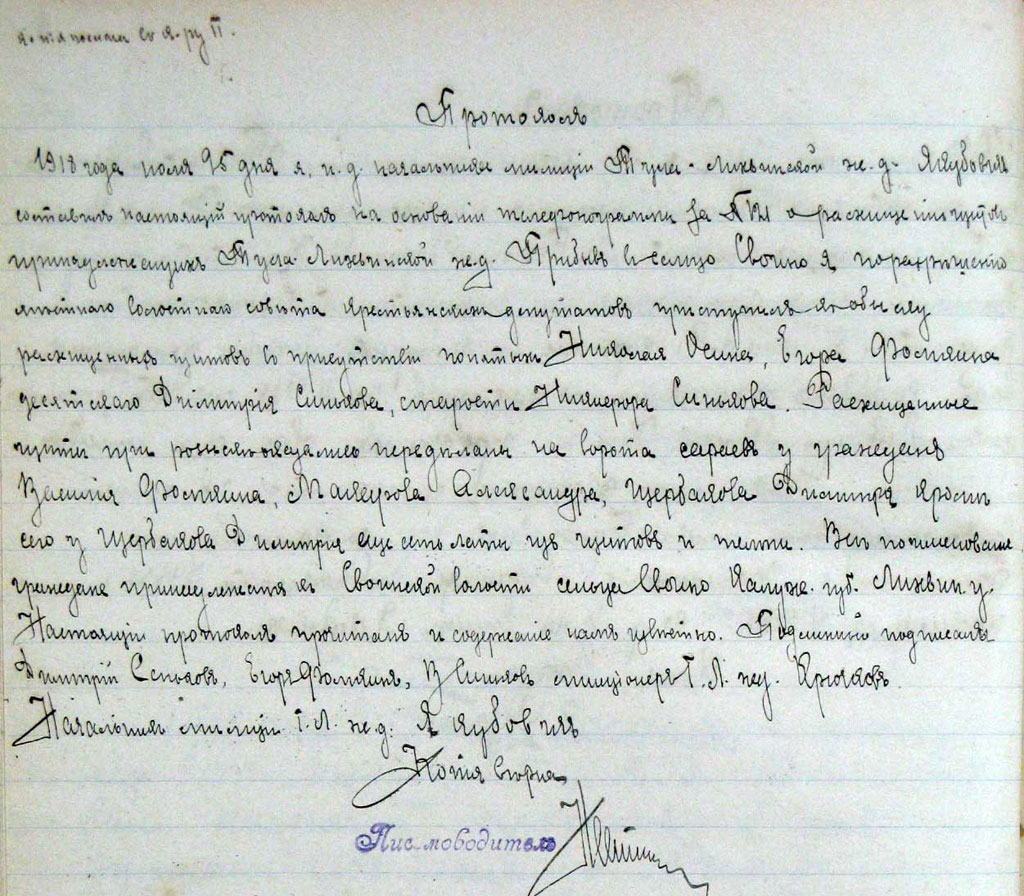 Протоколъ
1918 года июля 25 дня я, и. д. начальника милиціи Тула-Лихвинской ж. д. Якубовичъ
составилъ настоящій протоколъ на основаніи телефонограммы за № о расхищеніи щитовъ
принадлежащихъ Тула-Лихвинской ж.д. Прибывъ въ сельцо Своино я по разрѣшенію
мѣстнаго волостнаго совѣта крестьянскихъ депутатовъ приступилъ къ обыску
расхищенныхъ щитовъ въ присутствіи понятыхъ Николая Осина, Егора Фомкина
десятскаго Дмитрія Синькова, старосты Никифора Синькова. Расхищенные
щиты при розыске оказались передѣланы на ворота сараевъ у гражданъ
Василія Фомкина, Александра, Щербакова Дмитрія кромѣ
сего у Щербакова Дмитрія еще есть латы изъ щитовъ и . Всѣ поименованые
граждане принадлежатъ къ Своинской волости сельца Своино Калуж. губ. Лихвин. у.
Настоящій протоколъ прочитанъ и содержаніе намъ извѣстно. Подлинный подписали
Дмитрій Сеньковъ, Егоръ Фомкинъ, милиціонеръ Т.Л. жд. Крючковъ
Начальникъ милиціи Т. Л. ж.д. Якубовичъ
Копія вѣрна,
Письмоводитель